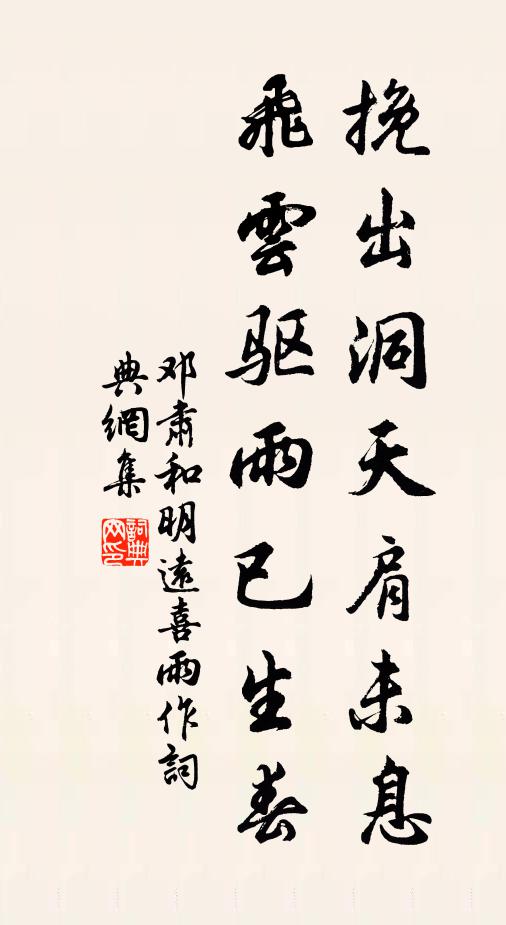 挽出洞天肩未息
飛雲驱雨已生春
邓肅和明遠喜雨作詞
典網集
詞典網印